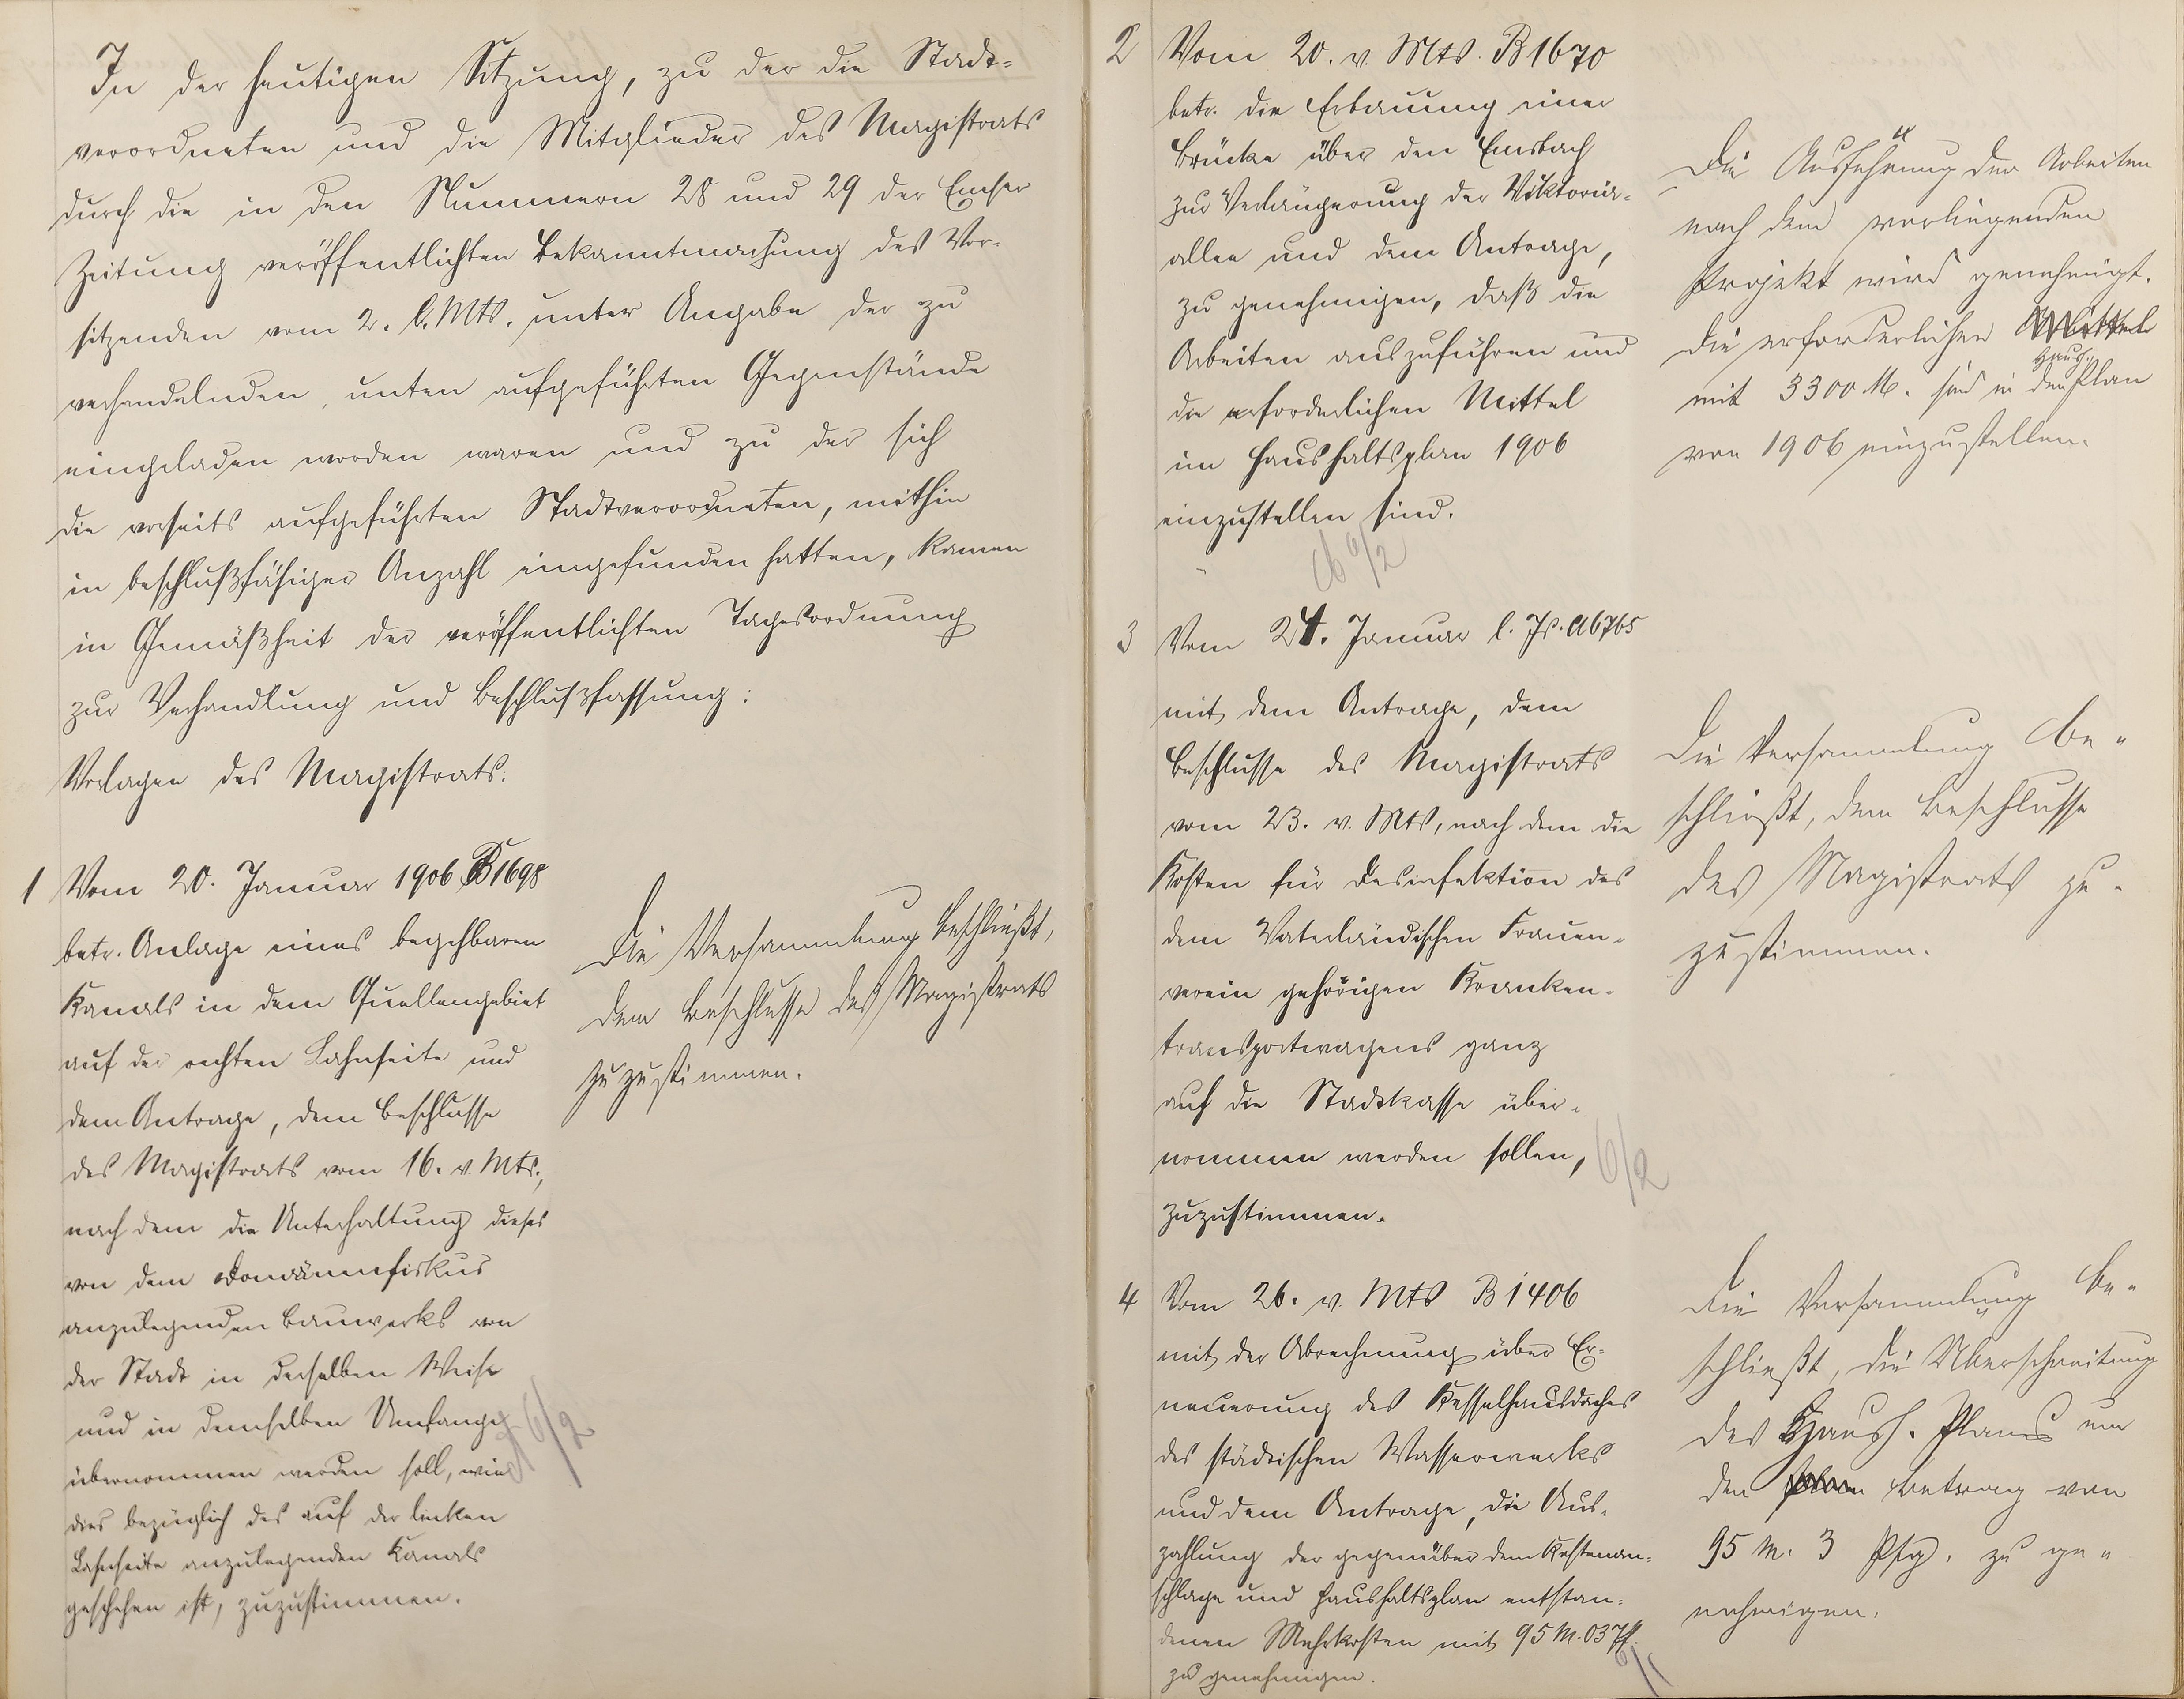 In der heutigen Sitzung, zu der die Stadt-
verordneten und die Mitglieder des Magistrats
durch die in den Nummern 28 und 29 der Emser
Zeitung veröffentlichten Bekanntmachung des Vor-
sitzenden vom 2. l. Mts. unter Angabe der zu
verhandelnden, unten aufgeführten Gegenstände
eingeladen worden waren und zu der sich
die vorseits aufgeführten Stadtverordneten, mithin
in beschlußfähiger Anzahl eingefunden hatten, kamen
in Gemäßheit der veröffentlichten Tagesordnung
zur Verhandlung und Beschlußfassung:
Vorlagen des Magistrats.
1 Vom 20. Januar 1906 B1698
betr. Anlage eines begehbaren
Kanals in dem Quellengebiet
auf der rechten Lahnseite und
dem Antrage, dem Beschlusse
des Magistrats vom 16. v. Mts.,
nach dem die Unterhaltung dieses
von dem Domänenfiskus
anzulegenden Bauwerks von
der Stadt in derselben Weise
und in demselben Umfange
übernommen werden soll, wie
dies bezüglich des auf der linken
Lahnseite anzulegenden Kanals
geschehen ist, zuzustimmen.
6/2
Die Versammlung beschließt,
dem Beschlusse des Magistrats
zuzustimmen.
2 Vom 20. v. Mts. B1670
betr. die Erbauung einer
Brücke über den Emsbach
zur Verlängerung der Viktoria-
allee und dem Antrage,
zu genehmigen, daß die
Arbeiten auszuführen und
die erforderlichen Mittel
im Haushaltsplan 1906
einzustellen sind.
6/2
Die Ausführung der Arbeiten
nach dem vorliegenden
Projekt wird genehmigt.
Die erforderlichen Mittel
mit 3300 M. sind in den Haush. Plan
von 1906 einzustellen.
3 Vom 24. Januar l. Js. A6765
mit dem Antrage, dem
Beschlusse des Magistrats
vom 23. v. Mts, nach dem die
Kosten für Desinfektion des
dem Vaterländischen Frauen-
verein gehörigen Kranken-
transportwagens ganz
auf die Stadtkasse über-
nommen werden sollen,
zuzustimmen.
6/2
Die Versammlung be-
schließt, dem Beschlusse
des Magistrats zu-
zustimmen.
4 Vom 26. v. Mts B1406
mit der Abrechnung über Er-
neuerung des Kesselhausdaches
des städtischen Wasserwerks
und dem Antrage, die Aus-
zahlung der gegenüber dem Kostenan-
schlage und Haushaltsplan entstan-
denen Mehrkosten mit 95 M. 03 Pf.
zu genehmigen.
Die Versammlung be-
schließt, die Überschreitung
des Haush. Planes um
den Betrag von
95 M. 3 Pfg. zu ge-
nehmigen.